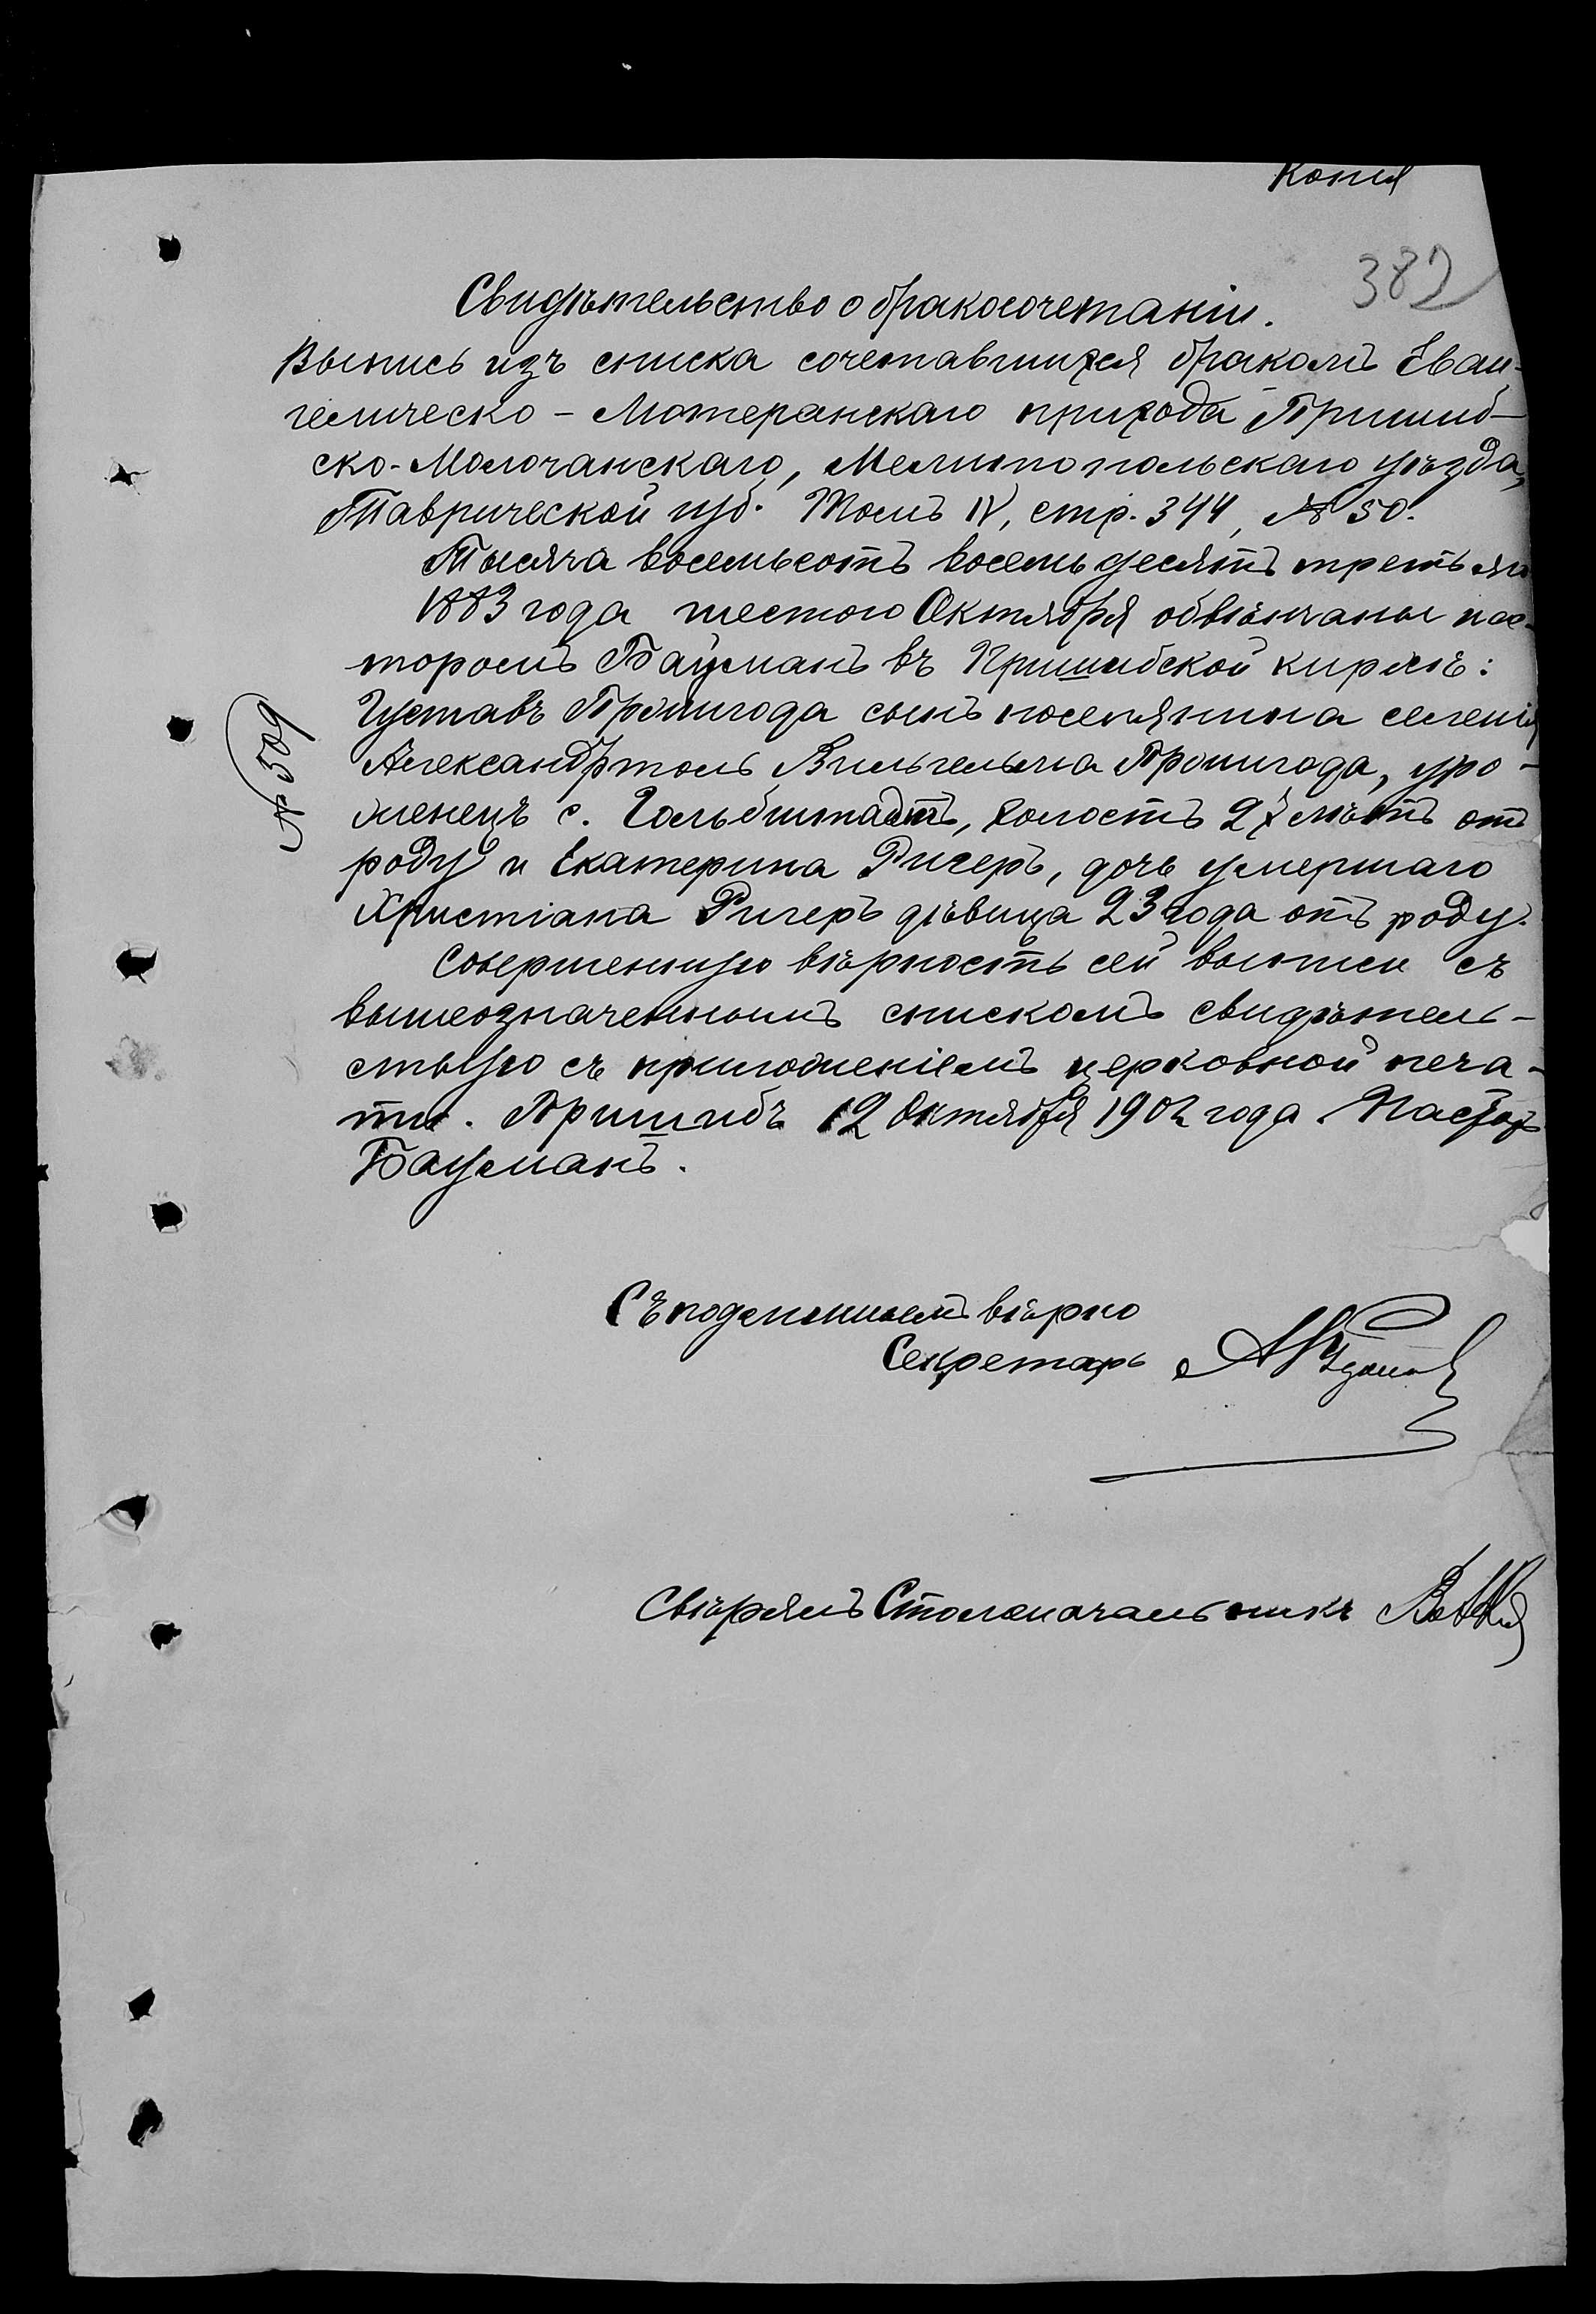 Копія
382
Свидѣтельство о бракосочетаніи.
Выпись изъ списка сочетавшихся бракомъ Еван-
гелическо - Лютеранскаго прихода Пришиб-
ско-Молочанскаго, Мелитопольскаго уѣзда,
Таврической губ. Томъ IV, стр. 344, № 50.
Тысяча восемьсотъ восемьдесятъ третьяго
1883 года шестого Октября обвѣнчаны пас-
торомъ Бауманъ въ Пришибской кирхѣ:
Густавъ Пропигода сынъ поселянина селенія
Александрталь Вильгельма Пропигода, уро-
женецъ с. Гальбштадтъ, холостъ 27 лѣтъ отъ
роду и Екатерина Ригеръ, дочь умершаго
Христіана Ригеръ дѣвица 23 года отъ роду.
№ 509
Совершенную вѣрность сей выписи съ
вышеозначеннымъ спискомъ свидѣтель-
ствую съ приложеніемъ церковной печа-
ти. Пришибъ 12 Октября 1902 года. Пасторъ
Бауманъ.
Съ подлиннымъ вѣрно
Секретарь
Свѣрялъ Столоначальникъ